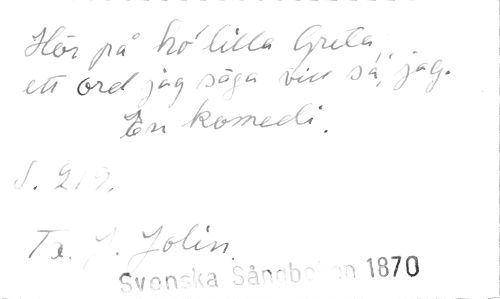 Hör på hö' lilla Greta,
ett ord jag säga vill så, jag.
En komedi.
S. 219.
Tx. J. Jolin.
Svenska Sångboken 1870